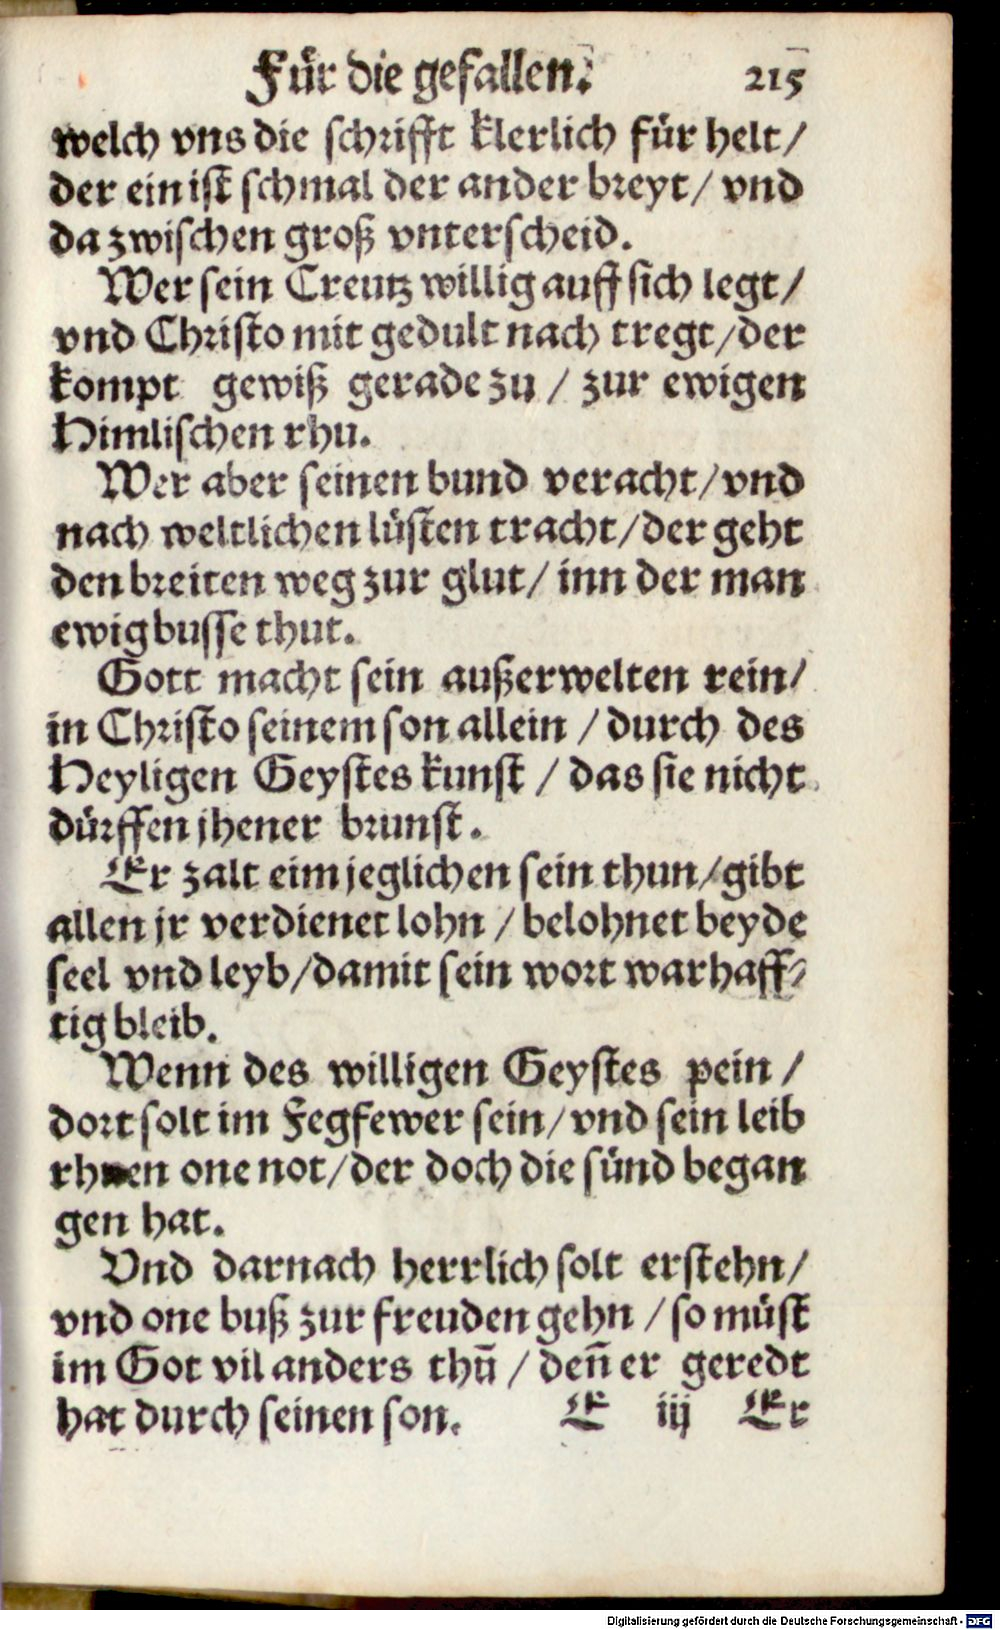 Für die gefallen. 215
welch vns die schrifft klerlich für helt/
der ein ist schmal der ander breyt/ vnd
da zwischen groß vnterscheid.
Wer sein Creutz willig auff sich legt/
vnd Christo mit gedult nach tregt/der
kompt gewiß gerade zu / zur ewigen
Himlischen rhu.
Wer aber seinen bund veracht/vnd
nach weltlichen lüsten tracht/der geht
den breiten weg zur glut/ inn der man
ewig busse thut.
Gott macht sein außerwelten rein/
in Christo seinem son allein /durch des
Heyligen Geystes kunst / das sie nicht
dürffen jhener brunst.
Er zalt eim jeglichen sein thun/gibt
allen jr verdienet lohn /belohnet beyde
seel vnd leyb/damit sein wort warhaff⸗
tig bleib.
Wenn des willigen Geystes pein /
dort solt im Fegfewer sein/vnd sein leib
rhuen one not/der doch die sünd began
gen hat.
Vnd darnach herrlich solt erstehn/
vnd one buß zur freuden gehn /so müst
im Got vil anders thun̄ / den̄ er geredt
hat durch seinen son. E iij Er
Digitalisierung gefördert durch die Deutsche Forschungsgemeinschaft - DFG